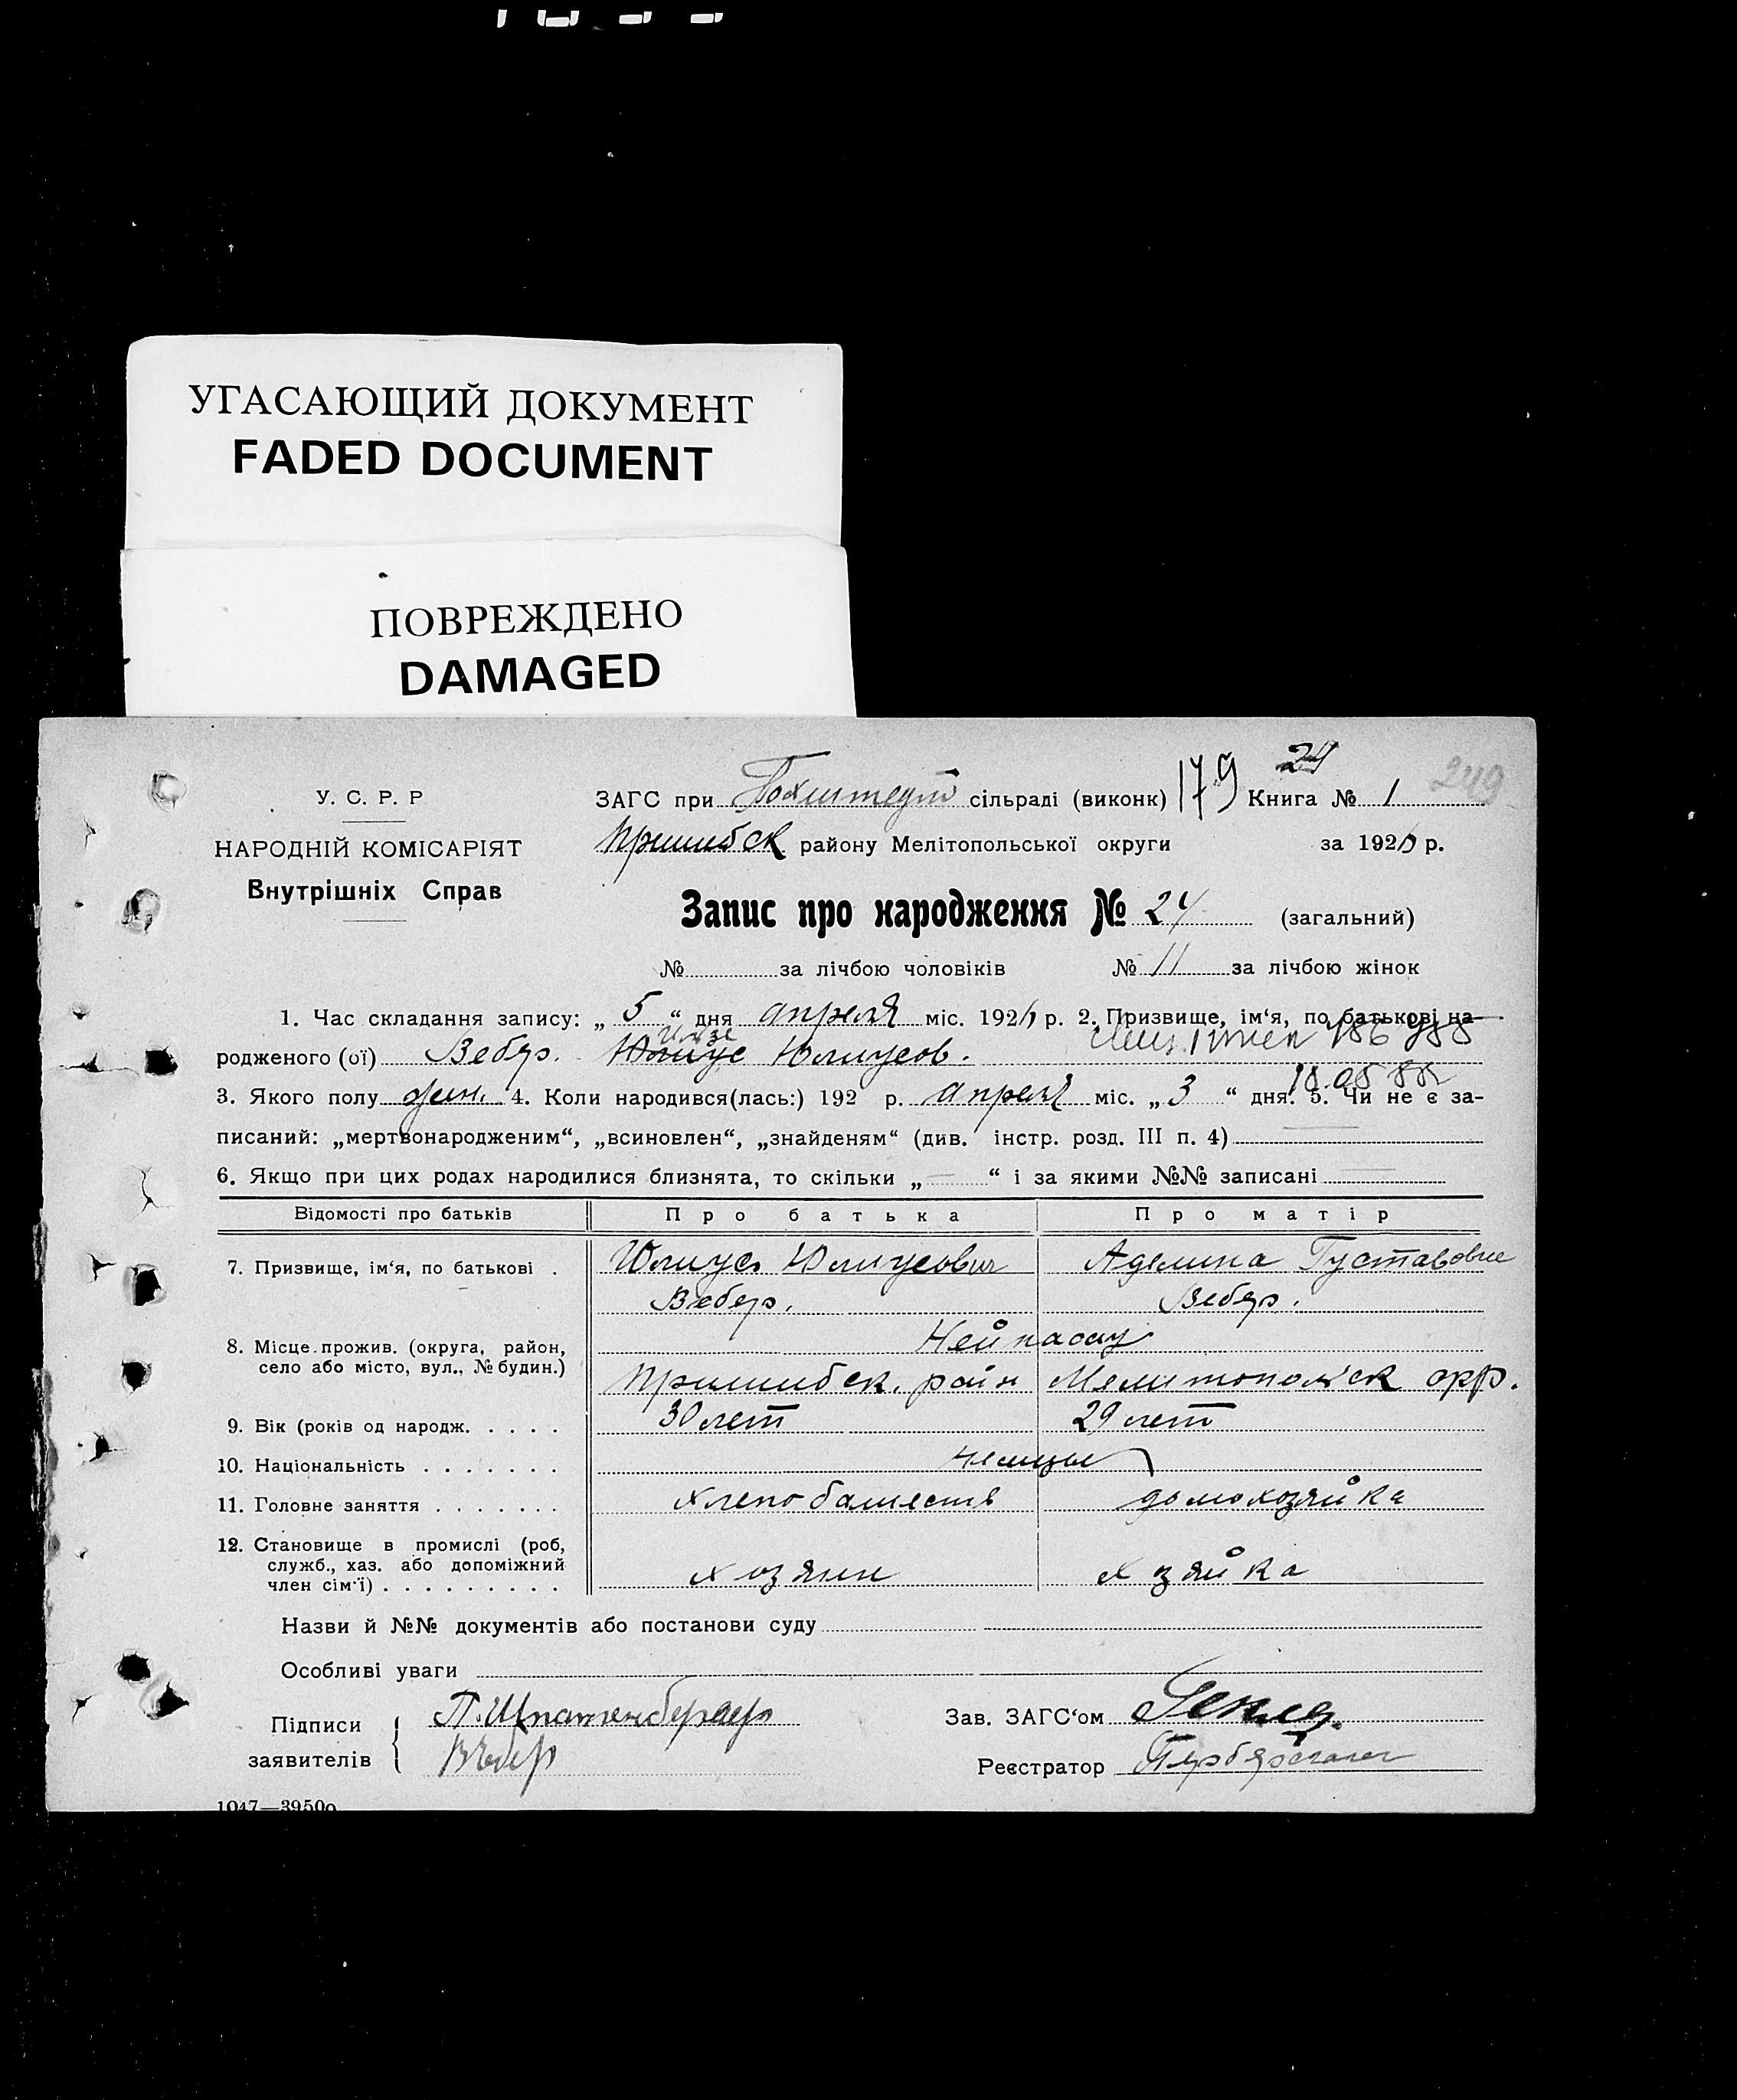 УГАСАЮЩИЙ ДОКУМЕНТ
FADED DOCUMENT
ПОВРЕЖДЕНО
DAMAGED
24
249
У. С. Р. Р
ЗАГС при Гохштедт сільраді (виконк) 179 Книга № 1
НАРОДНІЙ КОМІСАРІЯТ
Пришибск району Мелітопольської округи за 192 р.
Внутрішніх Справ
Запис про народження № 24 (загальний)
№ за лічбою чоловіків № 11 за лічбою жінок
1. Час складання запису: „ 5 “ дня апреля міс. 192 р. 2. Призвище, ім‘я, по батькові на-
родженого (ої) Вебер. Юлиус Юлиусов.
18.05.88
3. Якого полу жен. 4. Коли народився(лась:) 192 р. апреля міс. „ 3 “ дня. 5. Чи не є за-
писаний: „мертвонародженим“, „всиновлен“, „знайденям“ (див. інстр. розд. III п. 4)
6. Якщо при цих родах народилися близнята, то скільки „ “ і за якими №№ записані
Відомості про батьків Про батька Про матір
7. Призвище, ім‘я, по батькові . Юлиус Юлиусович Аделина Густавовне
Вебер. Вебер.
8. Місце прожив. (округа, район, Нейнасау
село або місто, вул., № будин.) Пришибск. райн Мелитопольск окр.
9. Вік (років од народж. . . . . 30 лет 29 лет
10. Національність . . . . . . . немцы
11. Головне заняття . . . . . . . домохозяйка
12. Становище в промислі (роб,
служб., хаз. або допоміжний
член сім‘ї) . . . . . . . . . хозяин хозяйка
Назви й №№ документів або постанови суду
Особливі уваги
Підписи
заявителів Вебер
Зав. ЗАГС‘ом
Реєстратор
1047—39500